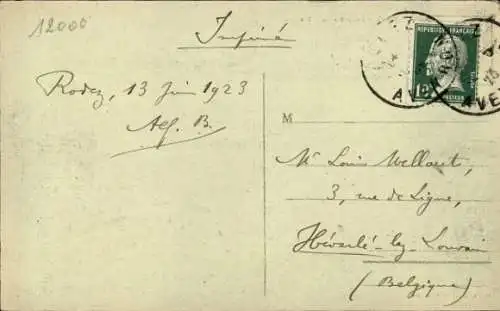 12000
Imprimé
Rodez, 13 Juin 1923
Alf. B.
REPUBLIQUE FRANÇAISE
POSTES
M
Mr Louis Wellaert,
3, rue de Ligne,
Héverlé-lez-Louvain
(Belgique)
AVE